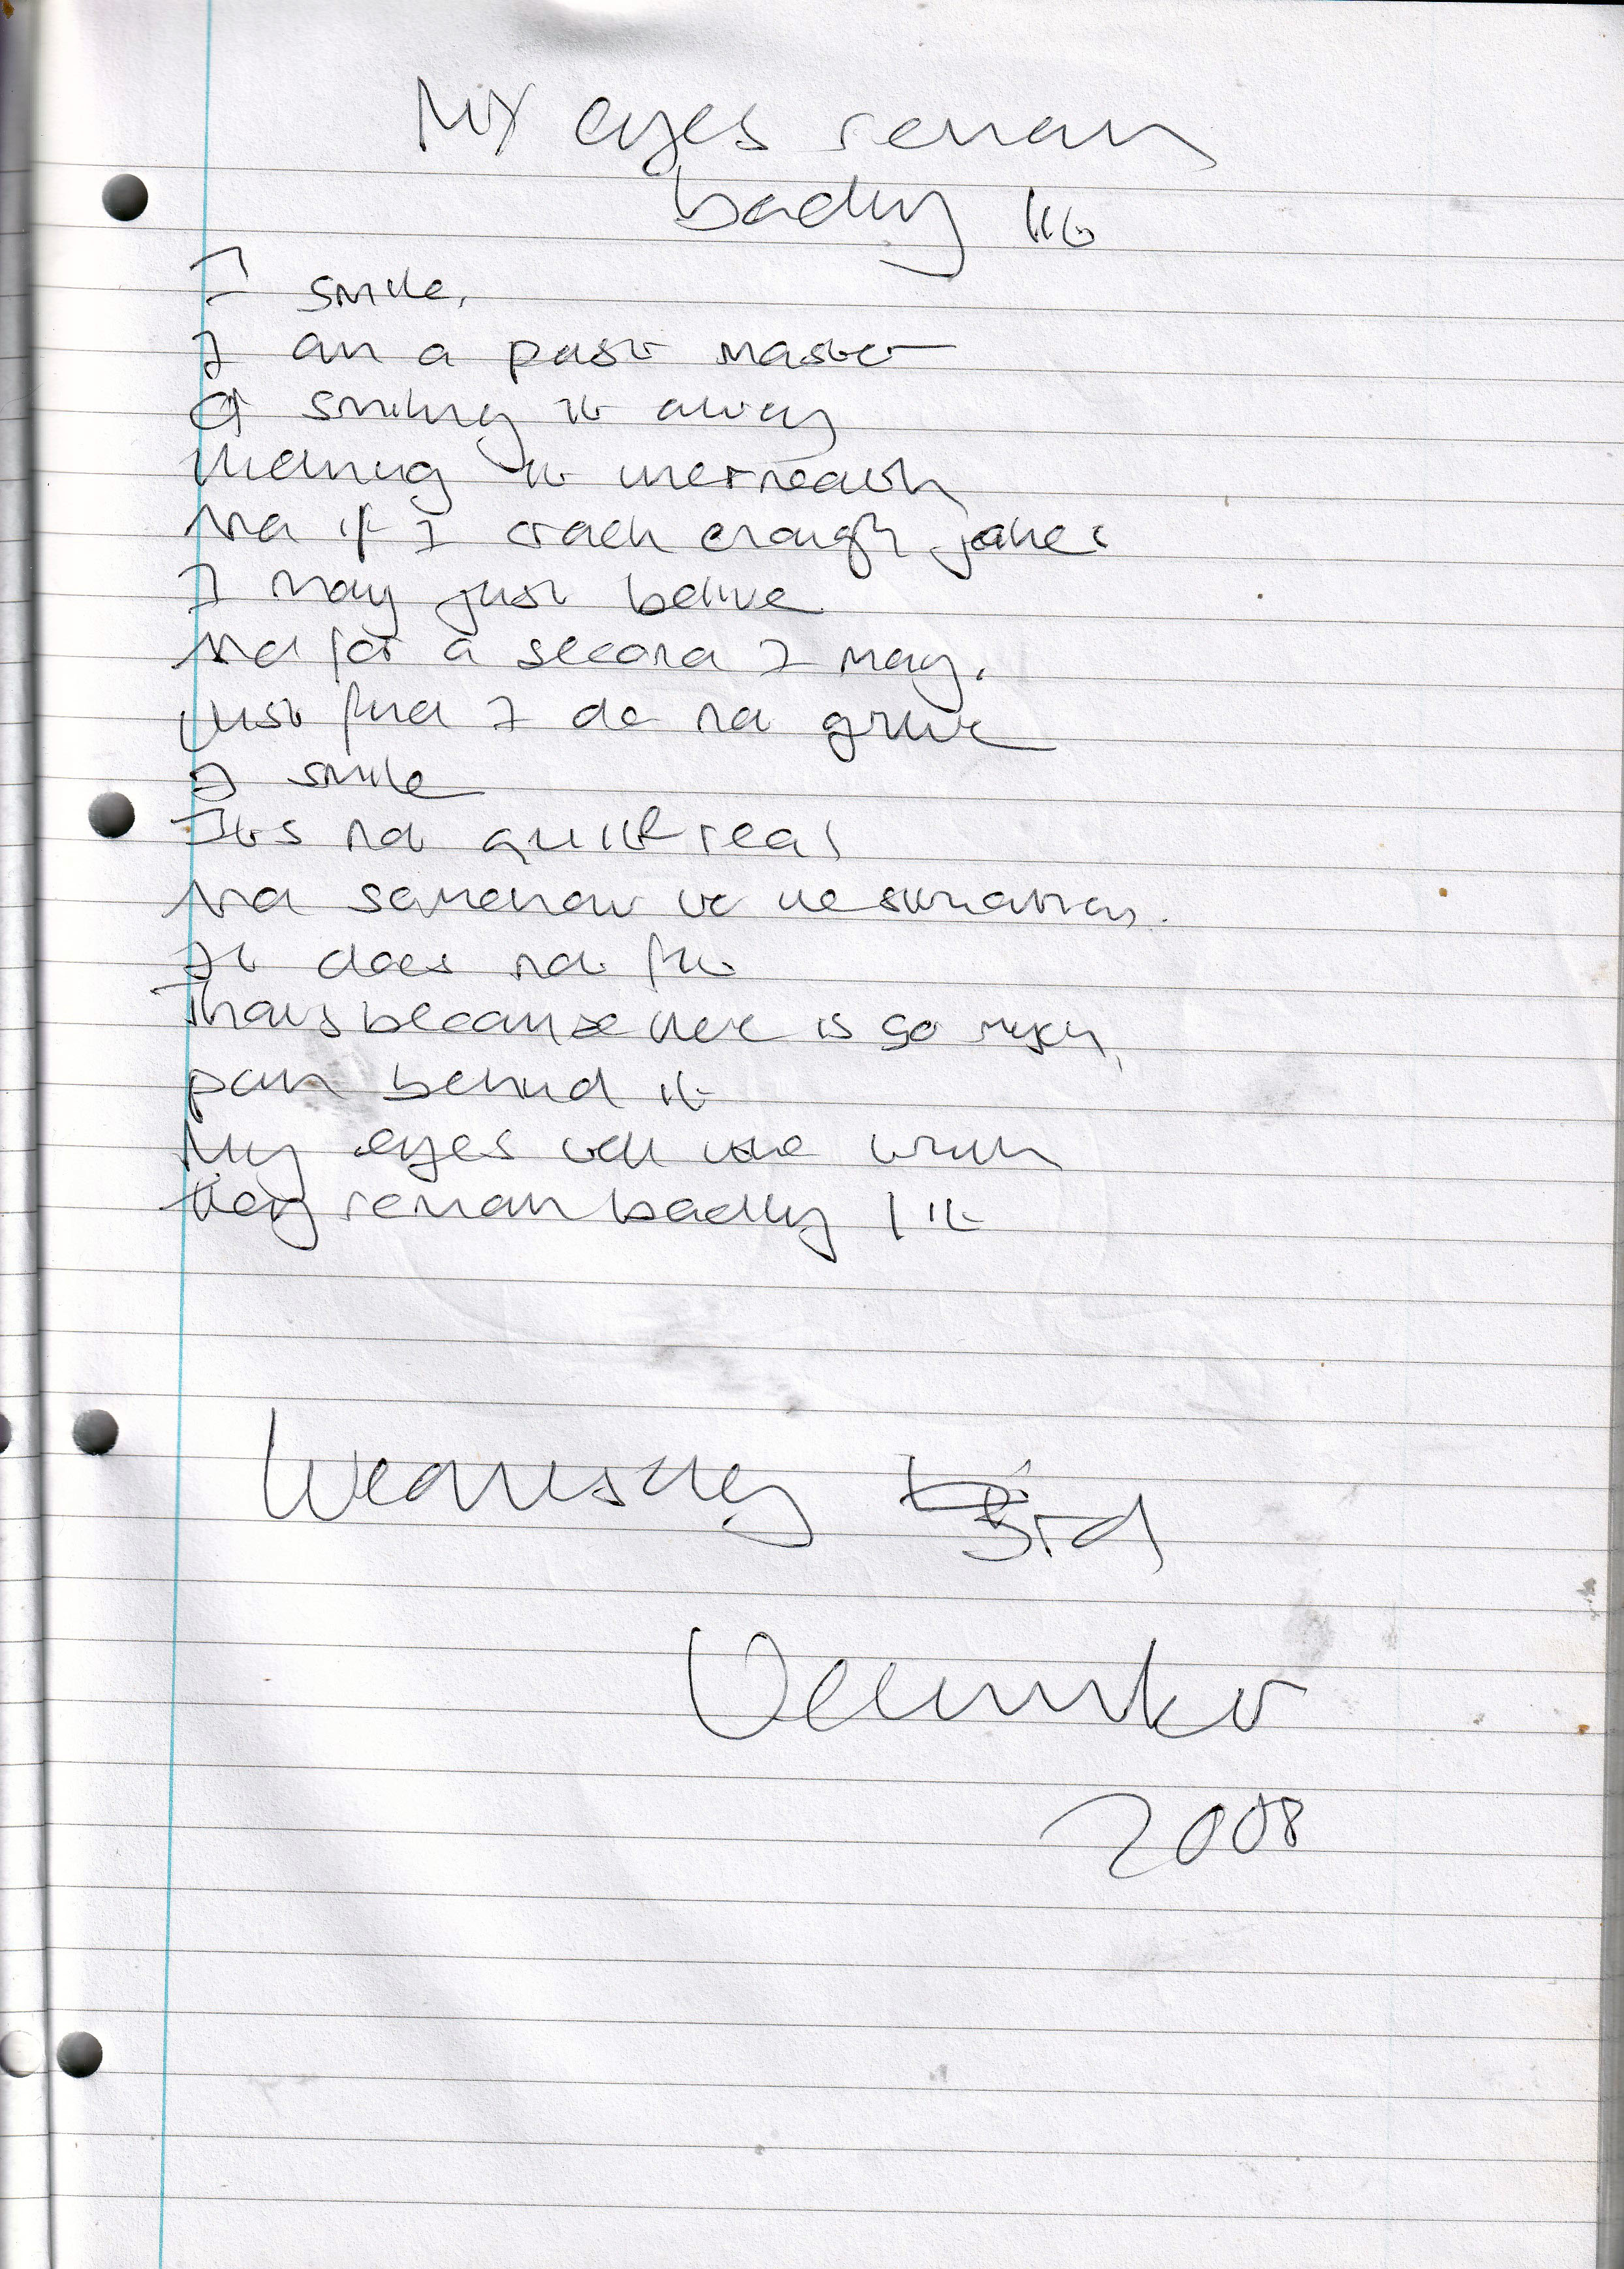 My eyes remain
badly lit
I smile,
I am a past master
Of smiling it away
thinking it underneath
And if I crack enough jokes
I may just belive
And for a second I may,
just find I do no grieve
I smile
Its not quite real
And somehow to the situation,
It does not fit
Thats because there is so much,
pain behind it
My eyes tell the truth
they remain badly lit
Wednesday 3rd
December
2008